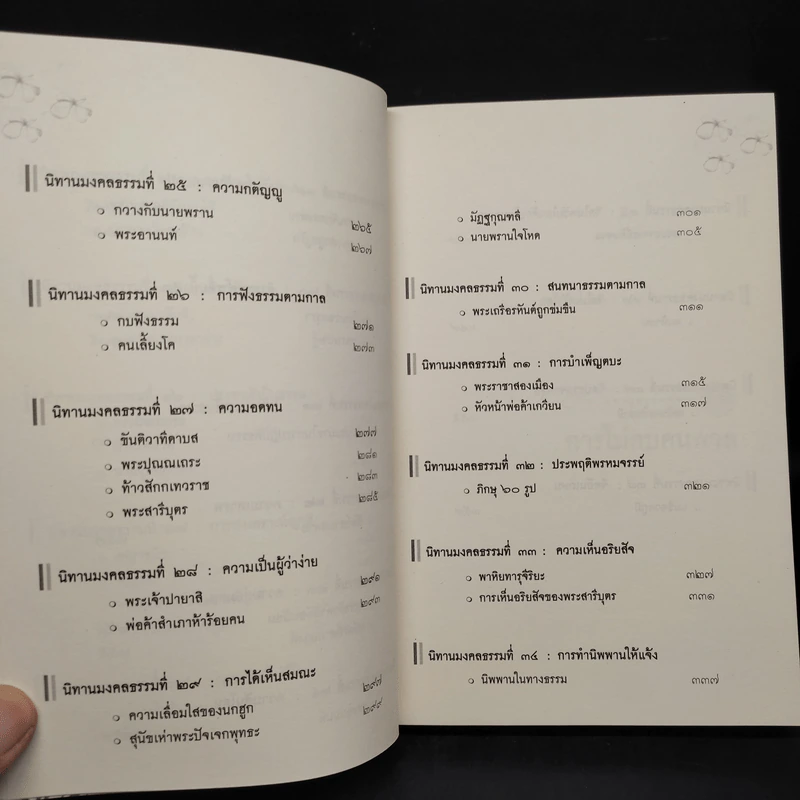 นิทานมงคลธรรมที่ ๒๕ : ความกตัญญู
กวางกับนายพราน ๒๖๕
พระอานนท์ ๒๖๗
นิทานมงคลธรรมที่ ๒๖ : การฟังธรรมตามกาล
กบฟังธรรม ๒๗๑
คนเลี้ยงโค ๒๗๓
นิทานมงคลธรรมที่ ๒๗ : ความอดทน
ขันติวาทีดาบส ๒๗๗
พระปุณณเถระ ๒๘๑
ท้าวสักกเทวราช ๒๘๓
พระสารีบุตร ๒๘๕
นิทานมงคลธรรมที่ ๒๘ : ความเป็นผู้ว่าง่าย
พระเจ้าปายาสิ ๒๙๑
พ่อค้าสำเภาห้าร้อยคน ๒๙๓
นิทานมงคลธรรมที่ ๒๙ : การได้เห็นสมณะ
ความเลื่อมใสของนกฮูก ๒๙๗
สุนัขเห่าพระปัจเจกพุทธะ ๒๙๙
มัฏฐกุณฑลี ๓๐๑
นายพรานใจโหด ๓๐๕
นิทานมงคลธรรมที่ ๓๐ : สนทนาธรรมตามกาล
พระเถรีอรหันต์ถูกข่มขืน ๓๑๑
นิทานมงคลธรรมที่ ๓๑ : การบำเพ็ญตบะ
พระราชาสองเมือง ๓๑๕
หัวหน้าพ่อค้าเกวียน ๓๑๗
นิทานมงคลธรรมที่ ๓๒ : ประพฤติพรหมจรรย์
ภิกษุ ๖๐ รูป ๓๒๑
นิทานมงคลธรรมที่ ๓๓ : ความเห็นอริยสัจ
พาหิยทารุจีริยะ ๓๒๗
การเห็นอริยสัจของพระสารีบุตร ๓๓๑
นิทานมงคลธรรมที่ ๓๔ : การทำนิพพานให้แจ้ง
นิพพานในทางธรรม ๓๓๗